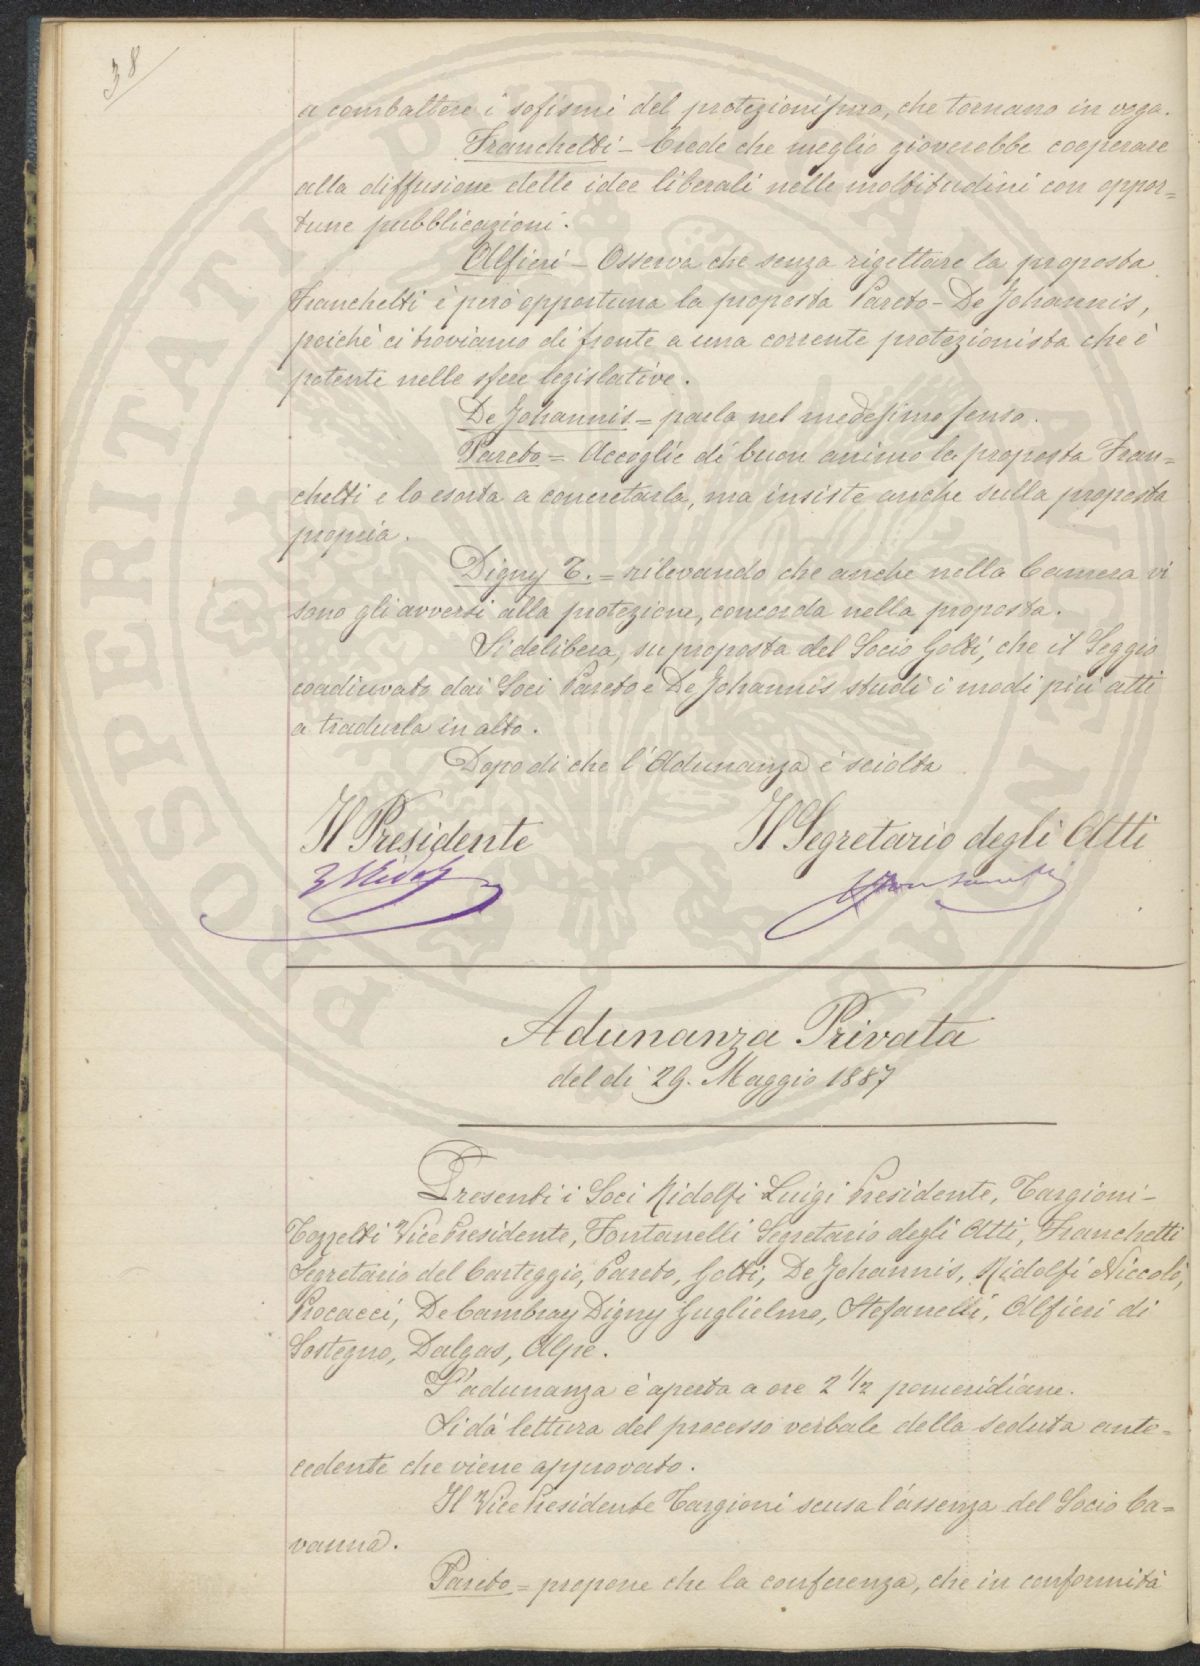 38
a combattere i sofismi del protezionismo, che tornano in voga.
Franchetti - Crede che meglio gioverebbe cooperare
alla diffusione delle idee liberali nelle moltitudini con oppor=
tune pubblicazioni.
Alfieri - Osserva che senza rigettare la proposta
Franchetti è però opportuna la proposta Pareto - De Johannis,
poichè ci troviamo di fronte a una corrente protezionista che è
potente nelle sfere legislative.
De Johannis = parla nel medesimo senso.
Pareto = Accoglie di buon animo la proposta Fran=
chetti e lo esorta a concretarla, ma insiste anche sulla proposta
propria.
Digny T. = rilevando che anche nella Camera vi
sono gli avversi alla protezione, concorda nella proposta.
Si delibera, su proposta del Socio Gotti, che il Seggio
coadiuvato dai Soci Pareto e De Johannis studi i modi più atti
a tradurla in atto.
Dopo di che l'Adunanza è sciolta
Il Presidente
Il Segretario degli Atti
L Ridolfi
Fontanelli
Adunanza Privata
del dì 29. Maggio 1887
Presenti i Soci Ridolfi Luigi Presidente, Targioni-
Tozzetti Vice Presidente, Fontanelli Segretario degli Atti, Franchetti
Segretario del Carteggio, Pareto, Gotti, De Johannis, Ridolfi Niccolò,
Procacci, De Cambray Digny Guglielmo, Stefanelli, Alfieri di
Sostegno, Dalgas, Alpe.
L'adunanza è aperta a ore 2 1/2 pomeridiane.
Si dà lettura del processo verbale della seduta ante=
cedente che viene approvato.
Il Vice Presidente Targioni scusa l'assenza del Socio Ca=
vanna.
Pareto = propone che la conferenza, che in conformità
PROSPERITATI PUBLICAE AUGENDAE